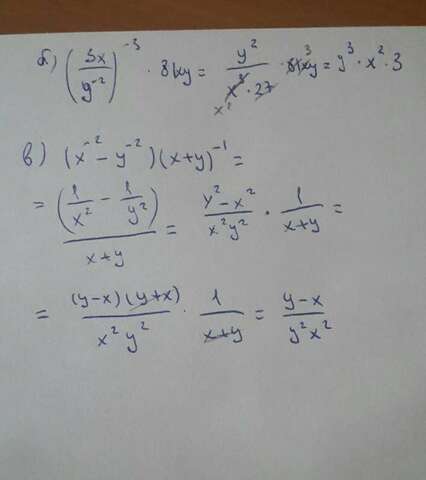 б) (3x/y^-2)^-3 · 81xy = y^2/(x^3 · 27) x^2 · 81xy 3 = y^3 · x^2 · 3
в) (x^-2 - y^-2)(x+y)^-1 =
= (1/x^2 - 1/y^2)/(x+y) = (y^2 - x^2)/(x^2y^2) · 1/(x+y) =
= (y-x)(y+x)/(x^2 y^2) · 1/(x+y) = (y-x)/(y^2x^2)